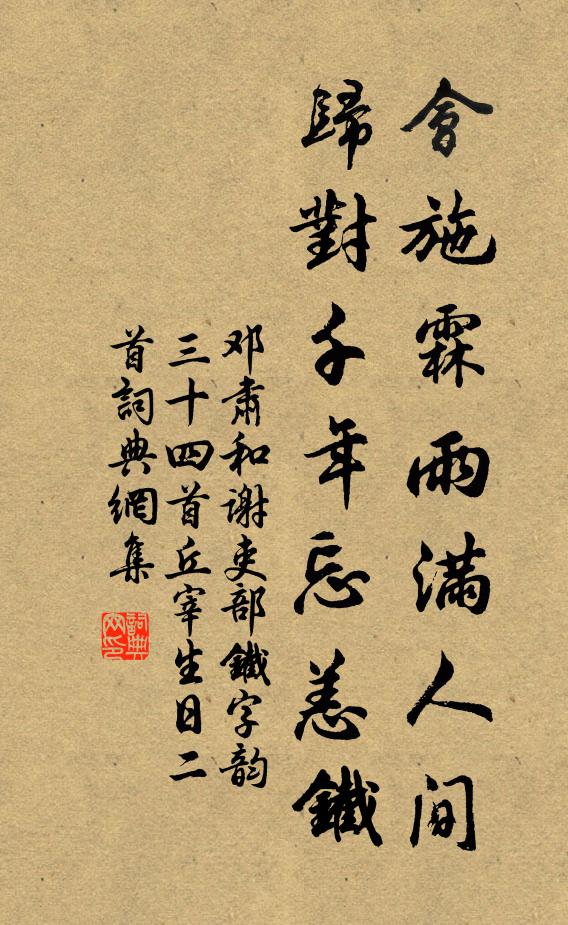 會施霖雨滿人间
歸對千年忘恙鐵
邓肅和谢吏部鐵字韵
三十四首丘宰生日二
首詞典網集
詞典网印